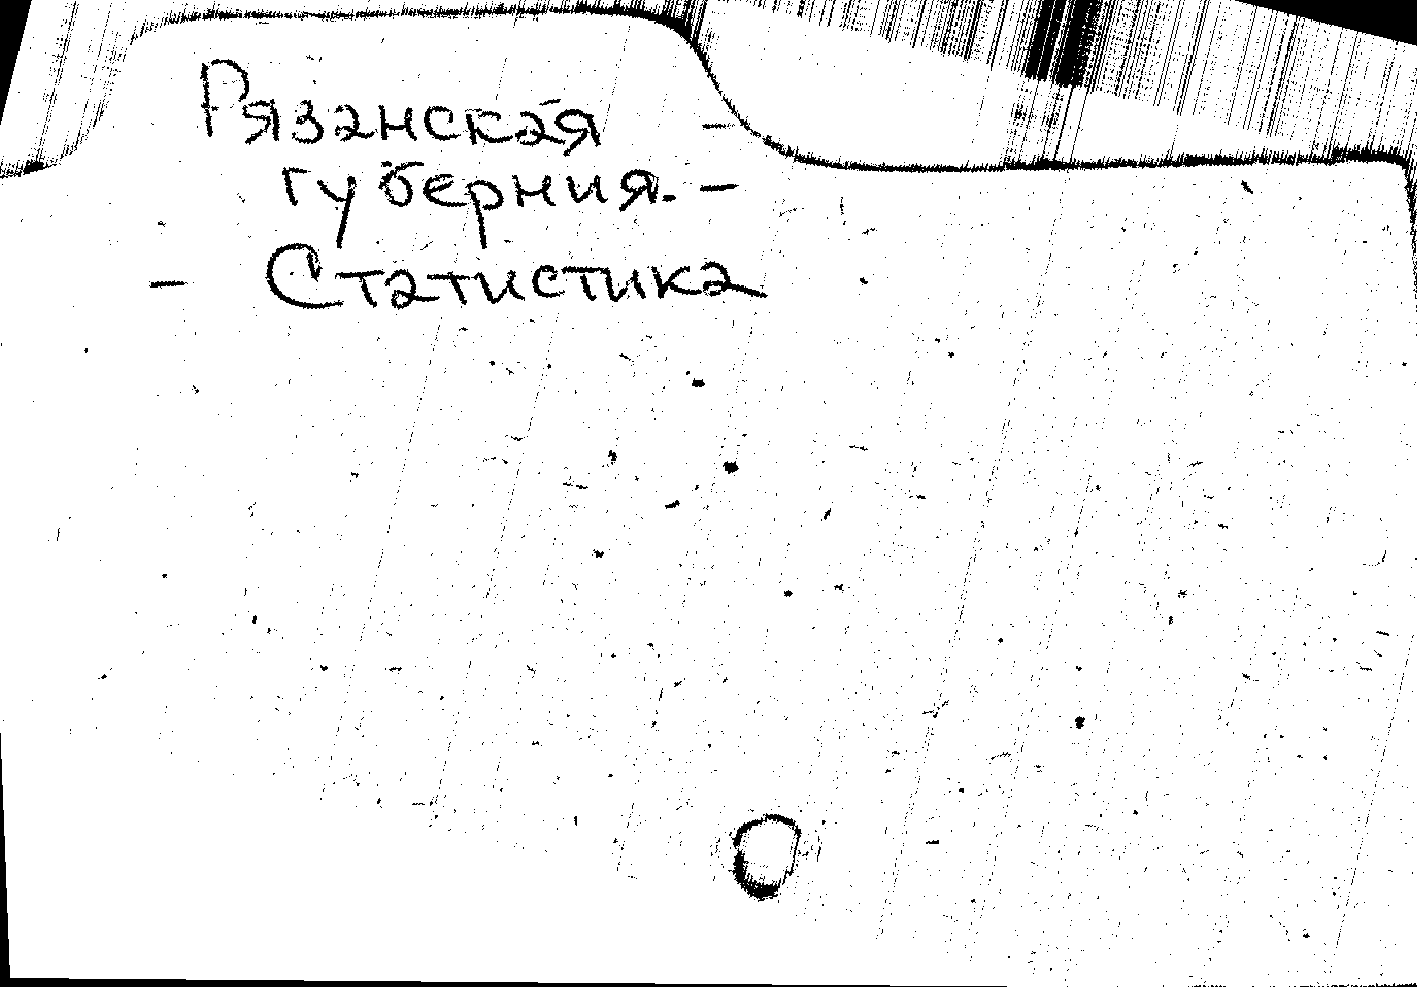 Рязанская -
губерния. -
- Статистика